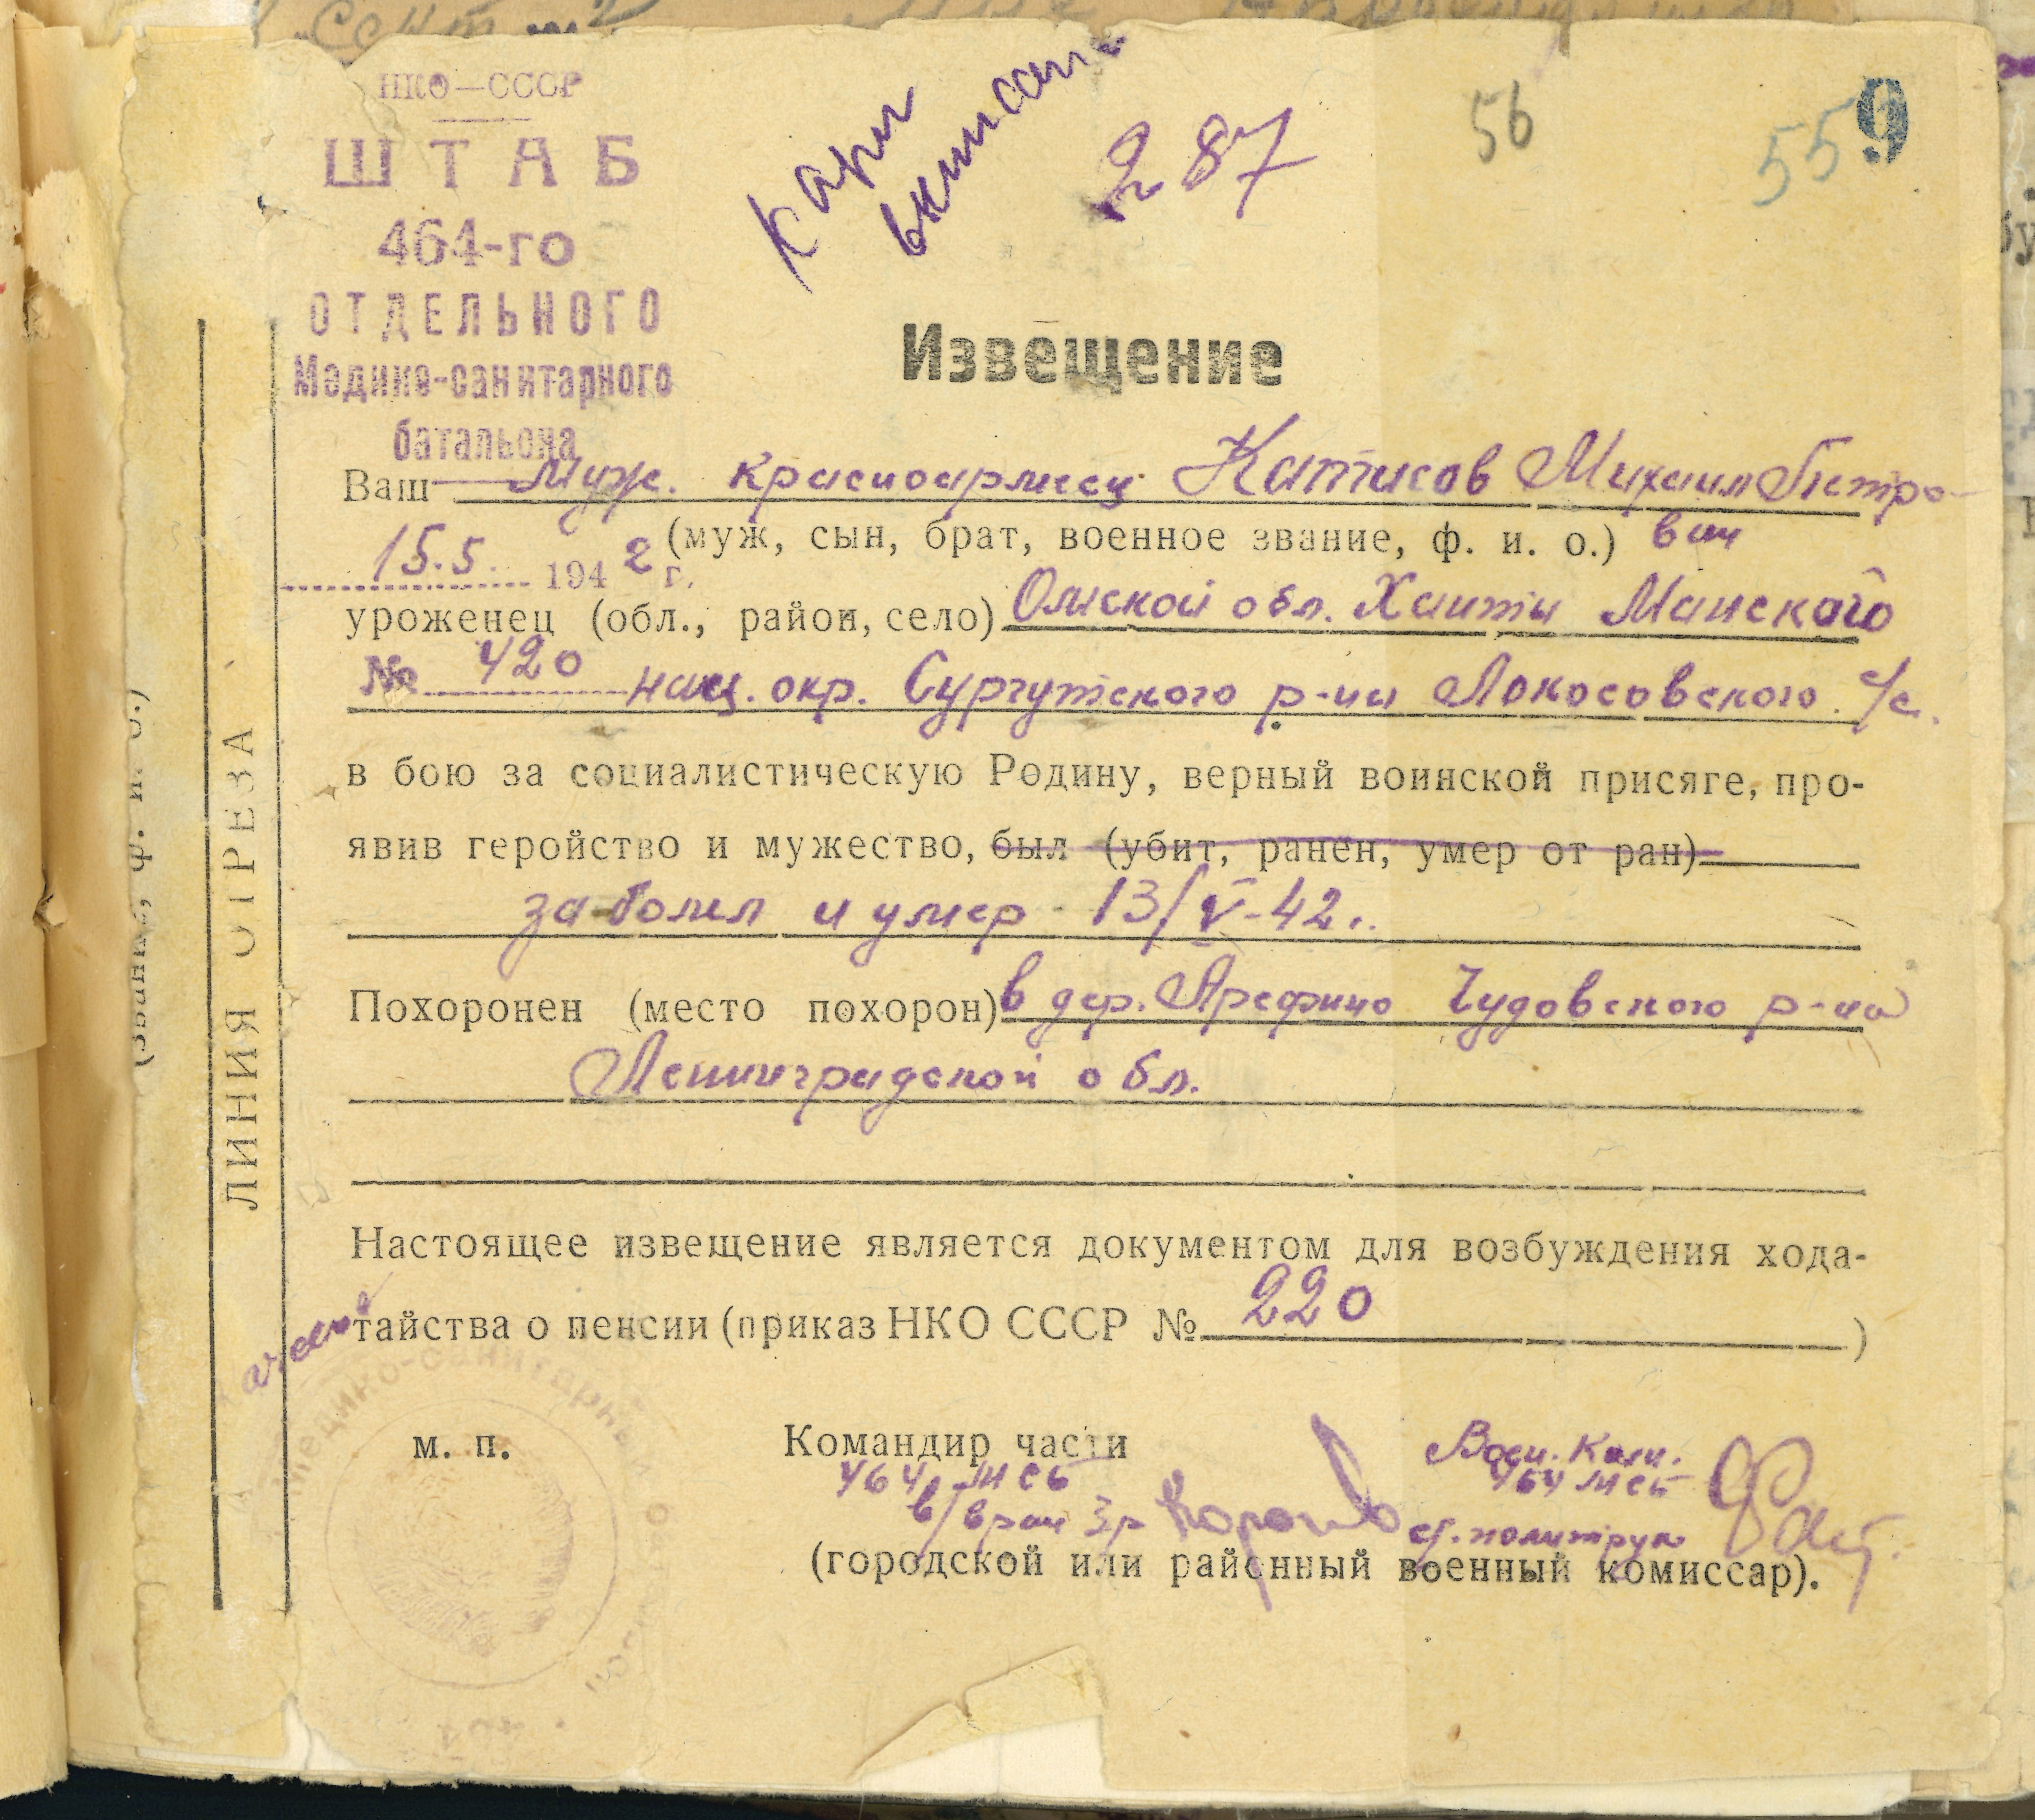 НКО—СССР
ШТАБ
464-го
ОТДЕЛЬНОГО
Медико-санитарного
батальона
15.5. 1942 г.
№ 420
287
56
55
9
Извещение
Ваш муж. красноармеец Катисов Михаил Петро-
(муж, сын, брат, военное звание, ф. и. о.) вич
уроженец (обл., район, село) Омской обл. Ханты Манского
нац. окр. Сургутского р-на Локосовского с/с.
в бою за социалистическую Родину, верный воинской присяге, про-
явив геройство и мужество, был (убит, ранен, умер от ран)
заболел и умер 13/V-42.
Похоронен (место похорон) в дер. Арефино Чудовского р-на
Ленинградской обл.
Настоящее извещение является документом для возбуждения хода-
тайства о пенсии (приказ НКО СССР № 220 )
м. п.
Командир части
464 мсб
в/врач 3р
Воен. Ком.
464 мсб
ст. политрук
(городской или районный военный комиссар).
ЛИНИЯ ОТРЕЗА